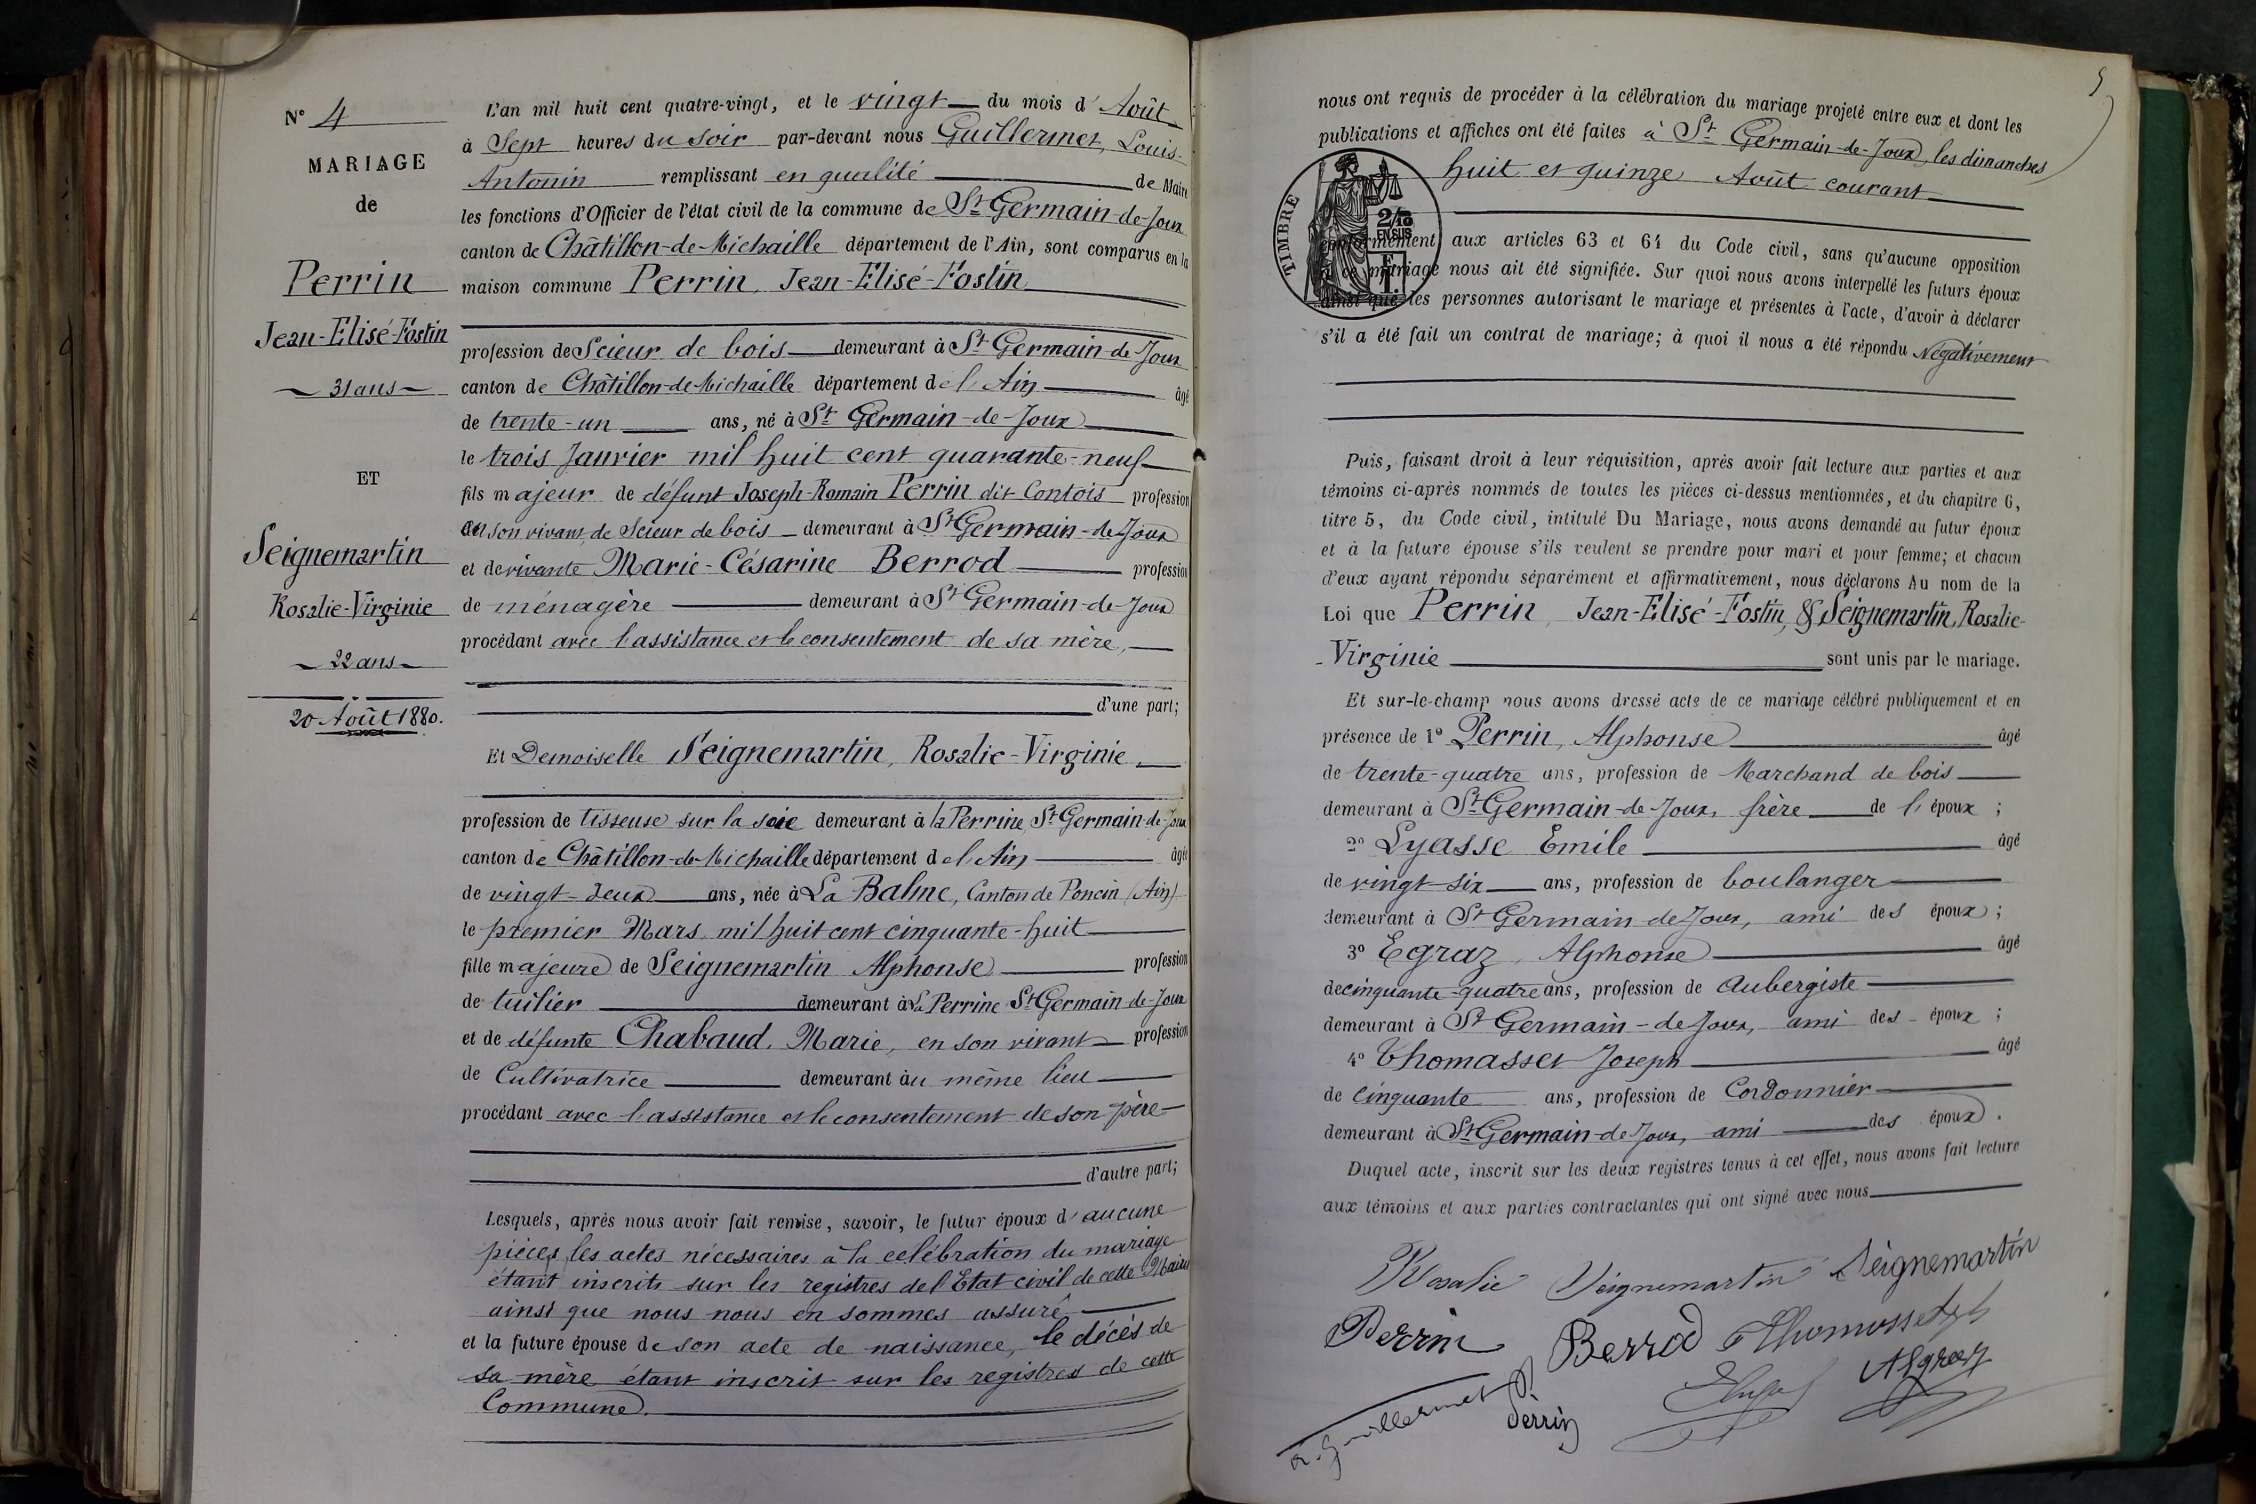 N° 4
MARIAGE
de
Perrin
Jean-Elisé-Fostin
31 ans
ET
Seignemartin
Rosalie-Virginie
22 ans
20 Août 1880.
L'an mil huit cent quatre-vingt, et le vingt du mois d'Août
à Sept heures du soir par-devant nous Guillermet, Louis-
Antonin remplissant en qualité de Maire
les fonctions d'Officier de l'état civil de la commune de St Germain-de-Joux
canton de Châtillon-de-Michaille département de l'Ain, sont comparus en la
maison commune Perrin, Jean-Elisé-Fostin
profession de Scieur de bois demeurant à St Germain-de-Joux
canton de Châtillon-de-Michaille département de l'Ain âgé
de trente-un ans, né à St Germain-de-Joux
le trois Janvier mil huit cent quarante-neuf
fils majeur de défunt Joseph-Romain Perrin dit Contois profession
en son vivant de Scieur de bois demeurant à St Germain-de-Joux
et de vivante Marie-Césarine Berrod profession
de ménagère demeurant à St Germain-de-Joux
procédant avec l'assistance et le consentement de sa mère,
d'une part;
Et Demoiselle Seignemartin, Rosalie-Virginie
profession de tisseuse sur la soie demeurant à la Perrine, St Germain-de-Joux
canton de Châtillon-de-Michaille département de l'Ain âgée
de vingt-deux ans, née à La Balme, Canton de Poncin (Ain)
le premier Mars mil huit cent cinquante-huit
fille majeure de Seignemartin Alphonse profession
de tuilier demeurant à La Perrine St Germain-de-Joux
et de défunte Chabaud, Marie, en son vivant profession
de Cultivatrice demeurant au même lieu
procédant avec l'assistance et le consentement de son père
d'autre part;
Lesquels, après nous avoir fait remise, savoir, le futur époux d'aucune
pièces, les actes nécessaires à la celébration du mariage
étant inscrits sur les registres de l'Etat civil de cette Mairie
ainsi que nous nous en sommes assuré
et la future épouse de son acte de naissance, le décès de
sa mère étant inscrit sur les registres de cette
Commune.
5
nous ont requis de procéder à la célébration du mariage projeté entre eux et dont les
publications et affiches ont été faites à St Germain-de-Joux, les dimanches
huit et quinze Août courant
TIMBRE
2/10
EN SUS
conformément aux articles 63 et 64 du Code civil, sans qu'aucune opposition
à ce mariage nous ait été signifiée. Sur quoi nous avons interpellé les futurs époux
ainsi que les personnes autorisant le mariage et présentes à l'acte, d'avoir à déclarer
s'il a été fait un contrat de mariage; à quoi il nous a été répondu Négativement
Puis, faisant droit à leur réquisition, après avoir fait lecture aux parties et aux
témoins ci-après nommés de toutes les pièces ci-dessus mentionnées, et du chapitre 6,
titre 5, du Code civil, intitulé Du Mariage, nous avons demandé au futur époux
et à la future épouse s'ils veulent se prendre pour mari et pour femme; et chacun
d'eux ayant répondu séparément et affirmativement, nous déclarons Au nom de la
Loi que Perrin, Jean-Elisé-Fostin, & Seignemartin, Rosalie-
-Virginie sont unis par le mariage.
Et sur-le-champ nous avons dressé acte de ce mariage célébré publiquement et en
présence de 1° Perrin, Alphonse âgé
de trente-quatre ans, profession de Marchand de bois
demeurant à St Germain-de-Joux, frère de l'époux;
2° Lyasse Emile âgé
de vingt-six ans, profession de boulanger
demeurant à St Germain-de-Joux, ami des époux;
3° Egraz, Alphonse âgé
de cinquante-quatre ans, profession de Aubergiste
demeurant à St Germain-de-Joux, ami des époux;
4° Thomasset Joseph âgé
de cinquante ans, profession de Cordonnier
demeurant à St Germain-de-Joux, ami des époux.
Duquel acte, inscrit sur les deux registres tenus à cet effet, nous avons fait lecture
aux témoins et aux parties contractantes qui ont signé avec nous
Rosalie Seignemartin Seignemartin
Perrin Berrod Thomasset
A. Guillermet Perrin